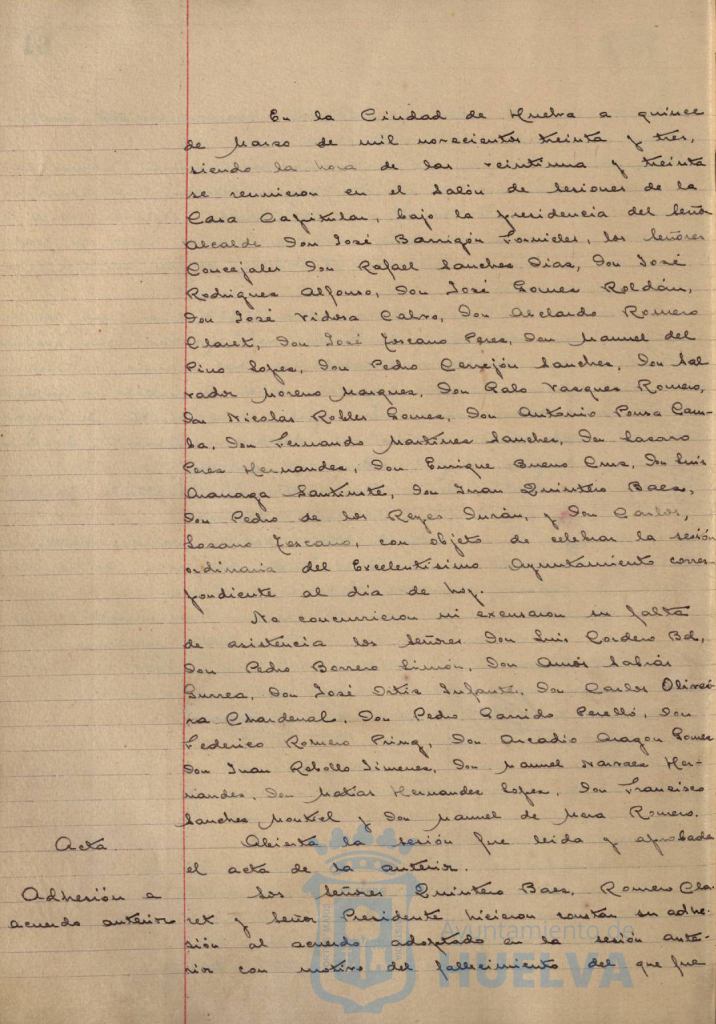 En la Ciudad de Huelva a quince
de Marzo de mil novecientos treinta y tres,
siendo la hora de las veintiuna y treinta
se reunieron en el Salón de Sesiones de la
Casa Capitular, bajo la presidencia del Señor
Alcalde Don José Barrigón Fornieles, los Señores
Concejales Don Rafael Sanchez Diaz, Don José
Rodriguez Alfonso, Don José Gomez Roldán,
Don José Vidosa Calvo, Don Abelardo Romero
Claret, Don José Toscano Perez, Don Manuel del
Pino Lopez, Don Pedro Cerrejón Sanchez, Don Sal-
vador Moreno Marquez, Don Galo Vazquez Romero,
Don Nicolás Robles Gomez, Don Antonio Pousa Cam-
ba, Don Fernando Martinez Sanchez, Don Lazaro
Perez Hernandez, Don Enrique Bueno Cruz, Don Luis
Aranaga Santiuste, Don Juan Quintero Baez,
Don Pedro de los Reyes Durán, y Don Carlos,
Lozano Toscano, con objeto de celebrar la sesión
ordinaria del Excelentísimo Ayuntamiento corres-
pondiente al dia de hoy.
No concurrieron ni excusaron su falta
de asistencia los Señores Don Luis Cordero Bel,
Don Pedro Borrero Limón, Don Amós Sabrás
Gurrea, Don José Ortiz Infante, Don Carlos Olivei-
ra Chardenal, Don Pedro Garrido Perelló, Don
Federico Romero Don Arcadio Aragon Gomez
Don Juan Rebollo Jimenez, Don Manuel Narvaez Her-
nandez, Don Matias Hernandez Lopez, Don Francisco
Sanchez Montiel y Don Manuel de Mora Romero.
Acta. Abierta la sesión fue leida y aprobada
el acta de la anterior.
Adhesión a Los Señores Quintero Baez, Romero Cla-
acuerdo anterior ret y Señor Presidente hicieron constar su adhe-
sión al acuerdo adoptado en la sesión ante-
rior con motivo del fallecimiento del que fue
Ayuntamiento de
HUELVA